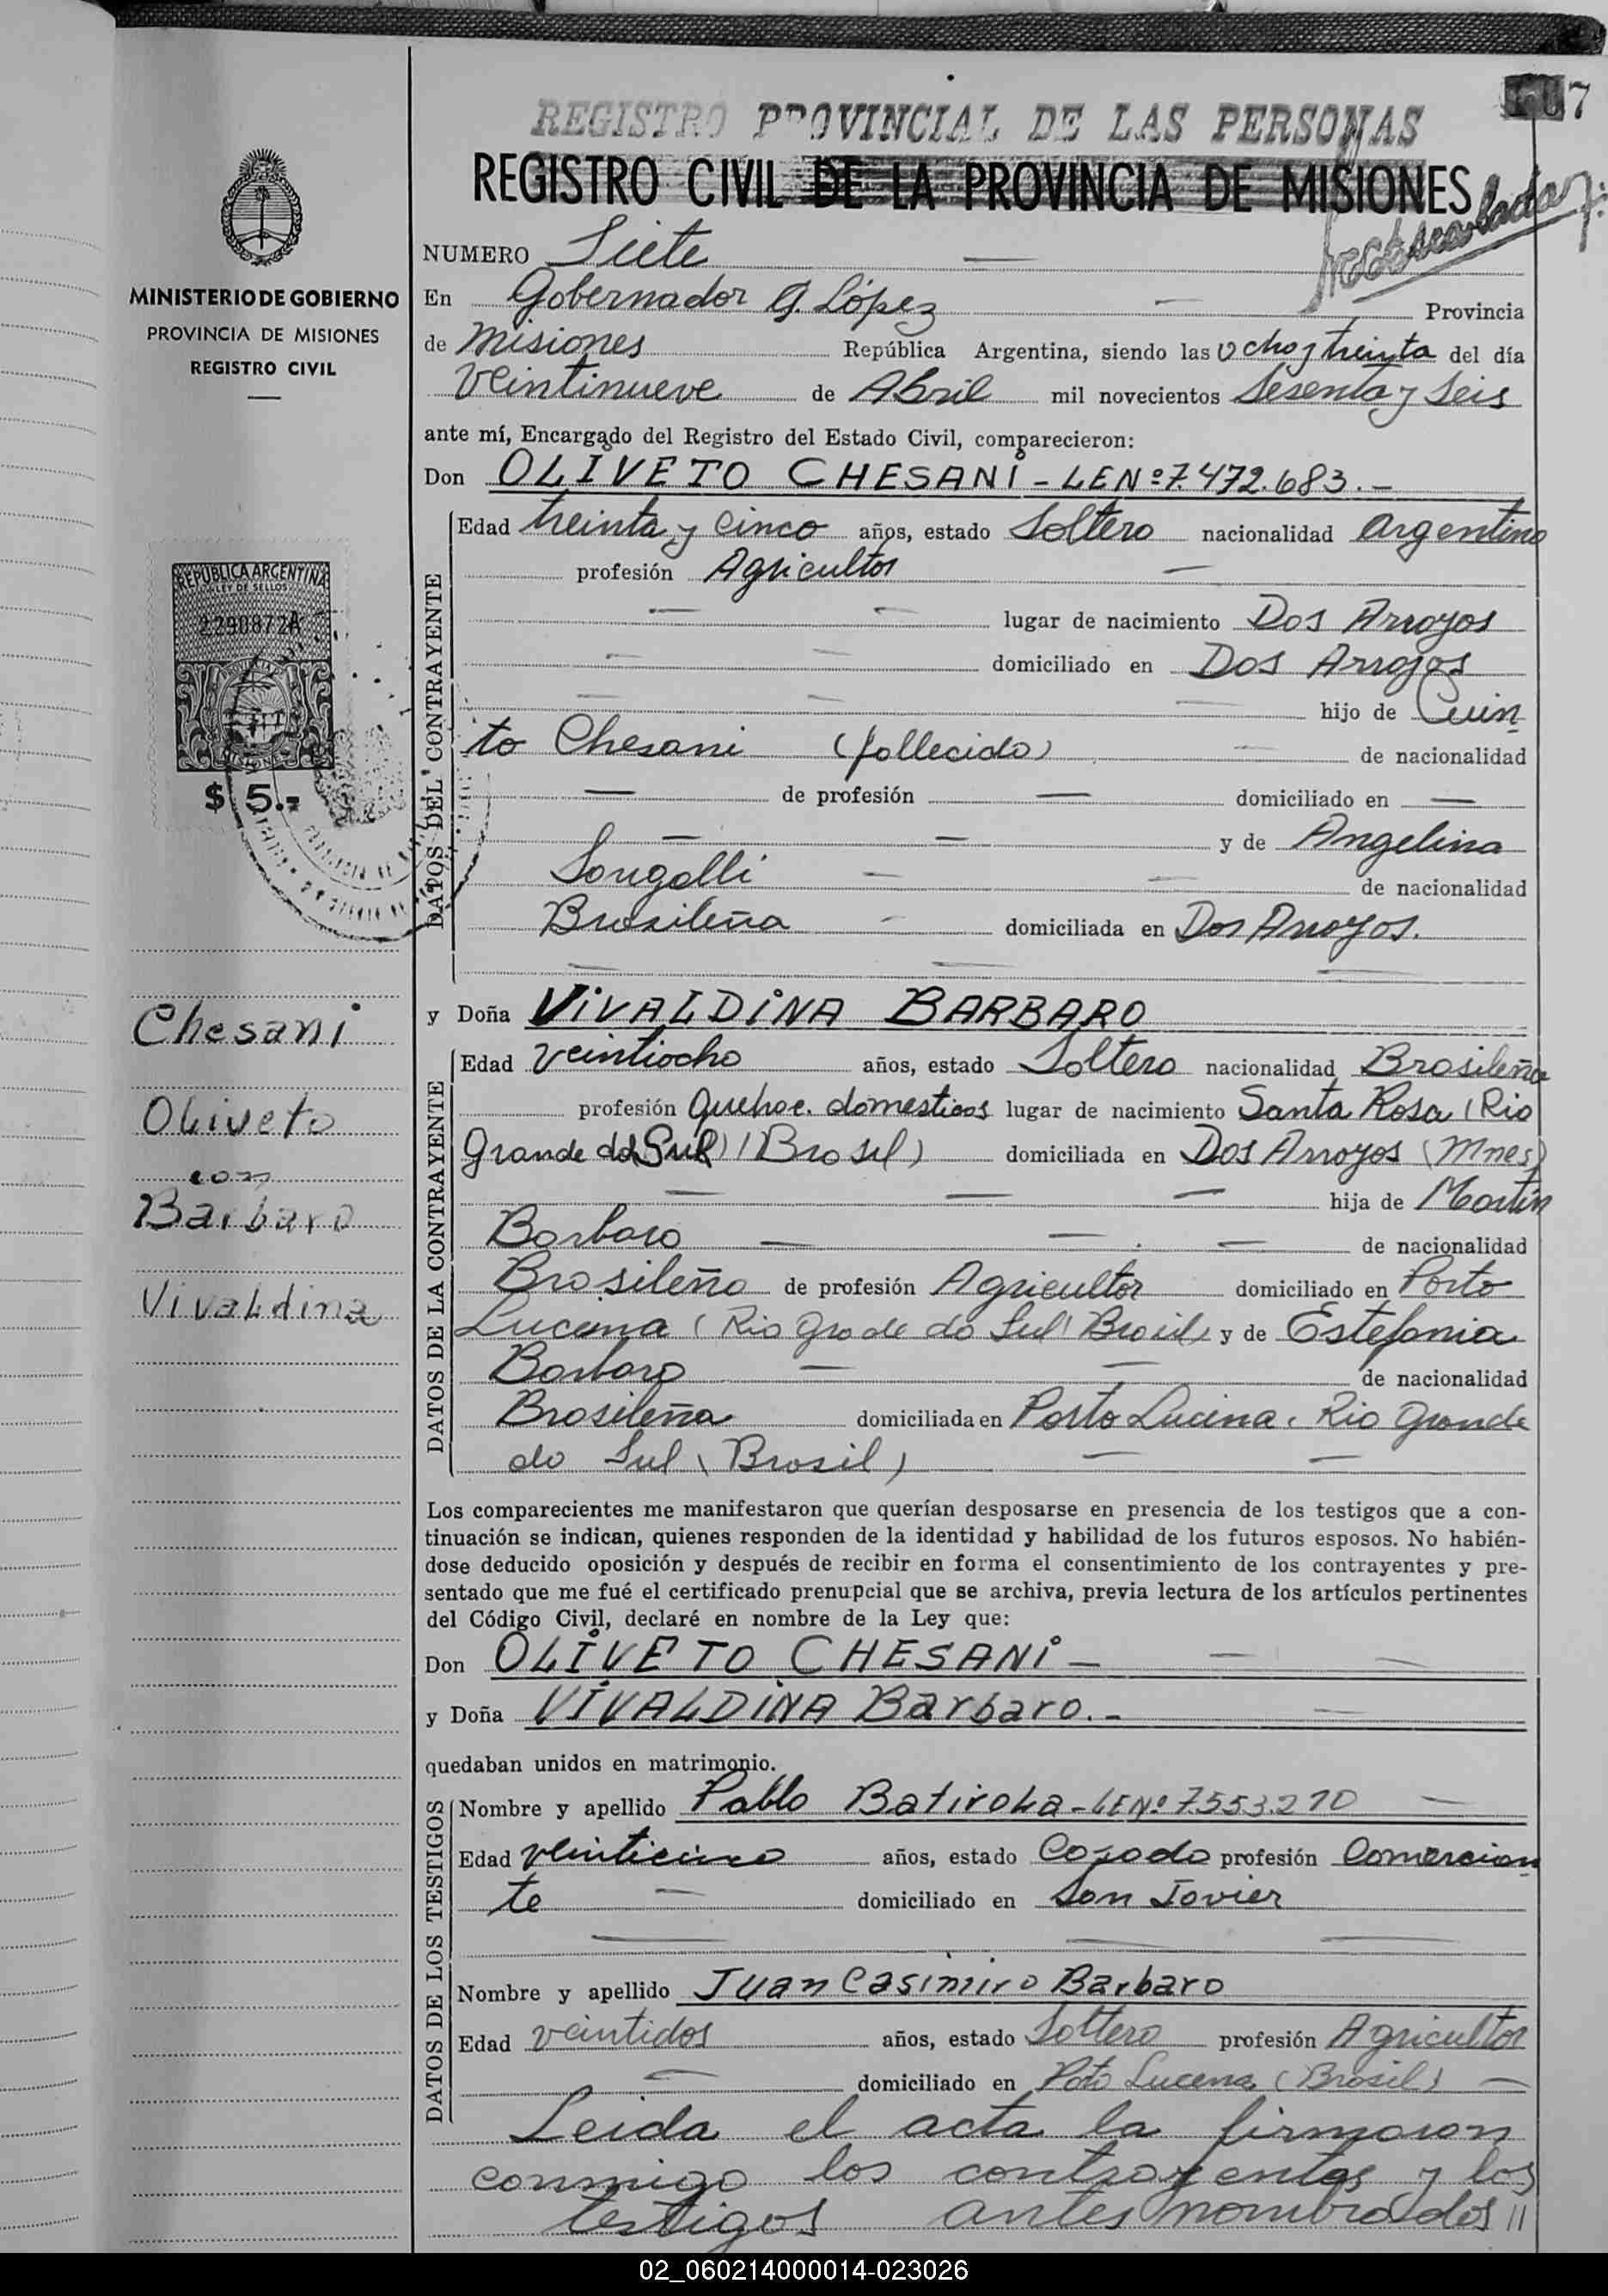 7
REGISTRO PROVINCIAL DE LAS PERSONAS
REGISTRO CIVIL DE LA PROVINCIA DE MISIONES
MINISTERIO DE GOBIERNO
PROVINCIA DE MISIONES
REGISTRO CIVIL
NUMERO Siete
En Gobernador G. López Provincia
de Misiones República Argentina, siendo las Ocho y treinta del día
Veintinueve de Abril mil novecientos Sesenta y Seis
ante mí, Encargado del Registro del Estado Civil, comparecieron:
Don OLIVETO CHESANI - LE Nº 7.472.683.-
DATOS DEL CONTRAYENTE
Edad treinta y cinco años, estado Soltero nacionalidad Argentino
profesión Agricultor
lugar de nacimiento Dos Arroyos
domiciliado en Dos Arroyos
hijo de Cuin
to Chesani (fallecido) de nacionalidad
de profesión domiciliado en
y de Angelina
de nacionalidad
Brasileña domiciliada en Dos Arroyos.
REPUBLICA ARGENTINA
LEY DE SELLOS
2290872A
MISIONES
$ 5.-
Chesani
Oliveto
con
Barbaro
Vivaldina
y Doña VIVALDINA BARBARO
DATOS DE LA CONTRAYENTE
Edad veintiocho años, estado Soltera nacionalidad Brasileña
profesión Quehac. domesticos lugar de nacimiento Santa Rosa (Rio
Grande do Sul) (Brasil) domiciliada en Dos Arroyos (Mnes)
hija de Martin
Barbaro de nacionalidad
Brasileño de profesión Agricultor domiciliado en Porto
Lucena (Rio Grade do Sul Brasil) y de Estefania
Barbaro de nacionalidad
Brasileña domiciliada en Porto Lucina, Rio Grande
do Sul (Brasil)
Los comparecientes me manifestaron que querían desposarse en presencia de los testigos que a con-
tinuación se indican, quienes responden de la identidad y habilidad de los futuros esposos. No habién-
dose deducido oposición y después de recibir en forma el consentimiento de los contrayentes y pre-
sentado que me fué el certificado prenupcial que se archiva, previa lectura de los artículos pertinentes
del Código Civil, declaré en nombre de la Ley que:
Don OLIVETO CHESANI -
y Doña VIVALDINA Barbaro.-
quedaban unidos en matrimonio.
DATOS DE LOS TESTIGOS
Nombre y apellido Pablo Batirola - LE Nº 7.553.210
Edad veinticinco años, estado Casado profesión Comercian
te domiciliado en San Javier
Nombre y apellido Juan Casimiro Barbaro
Edad veintidos años, estado Soltero profesión Agricultor
domiciliado en Poto Lucena (Brasil)
Leida el acta la firmaron
conmigo los contrayentes y los
testigos antes nombrados //
02_060214000014-023026